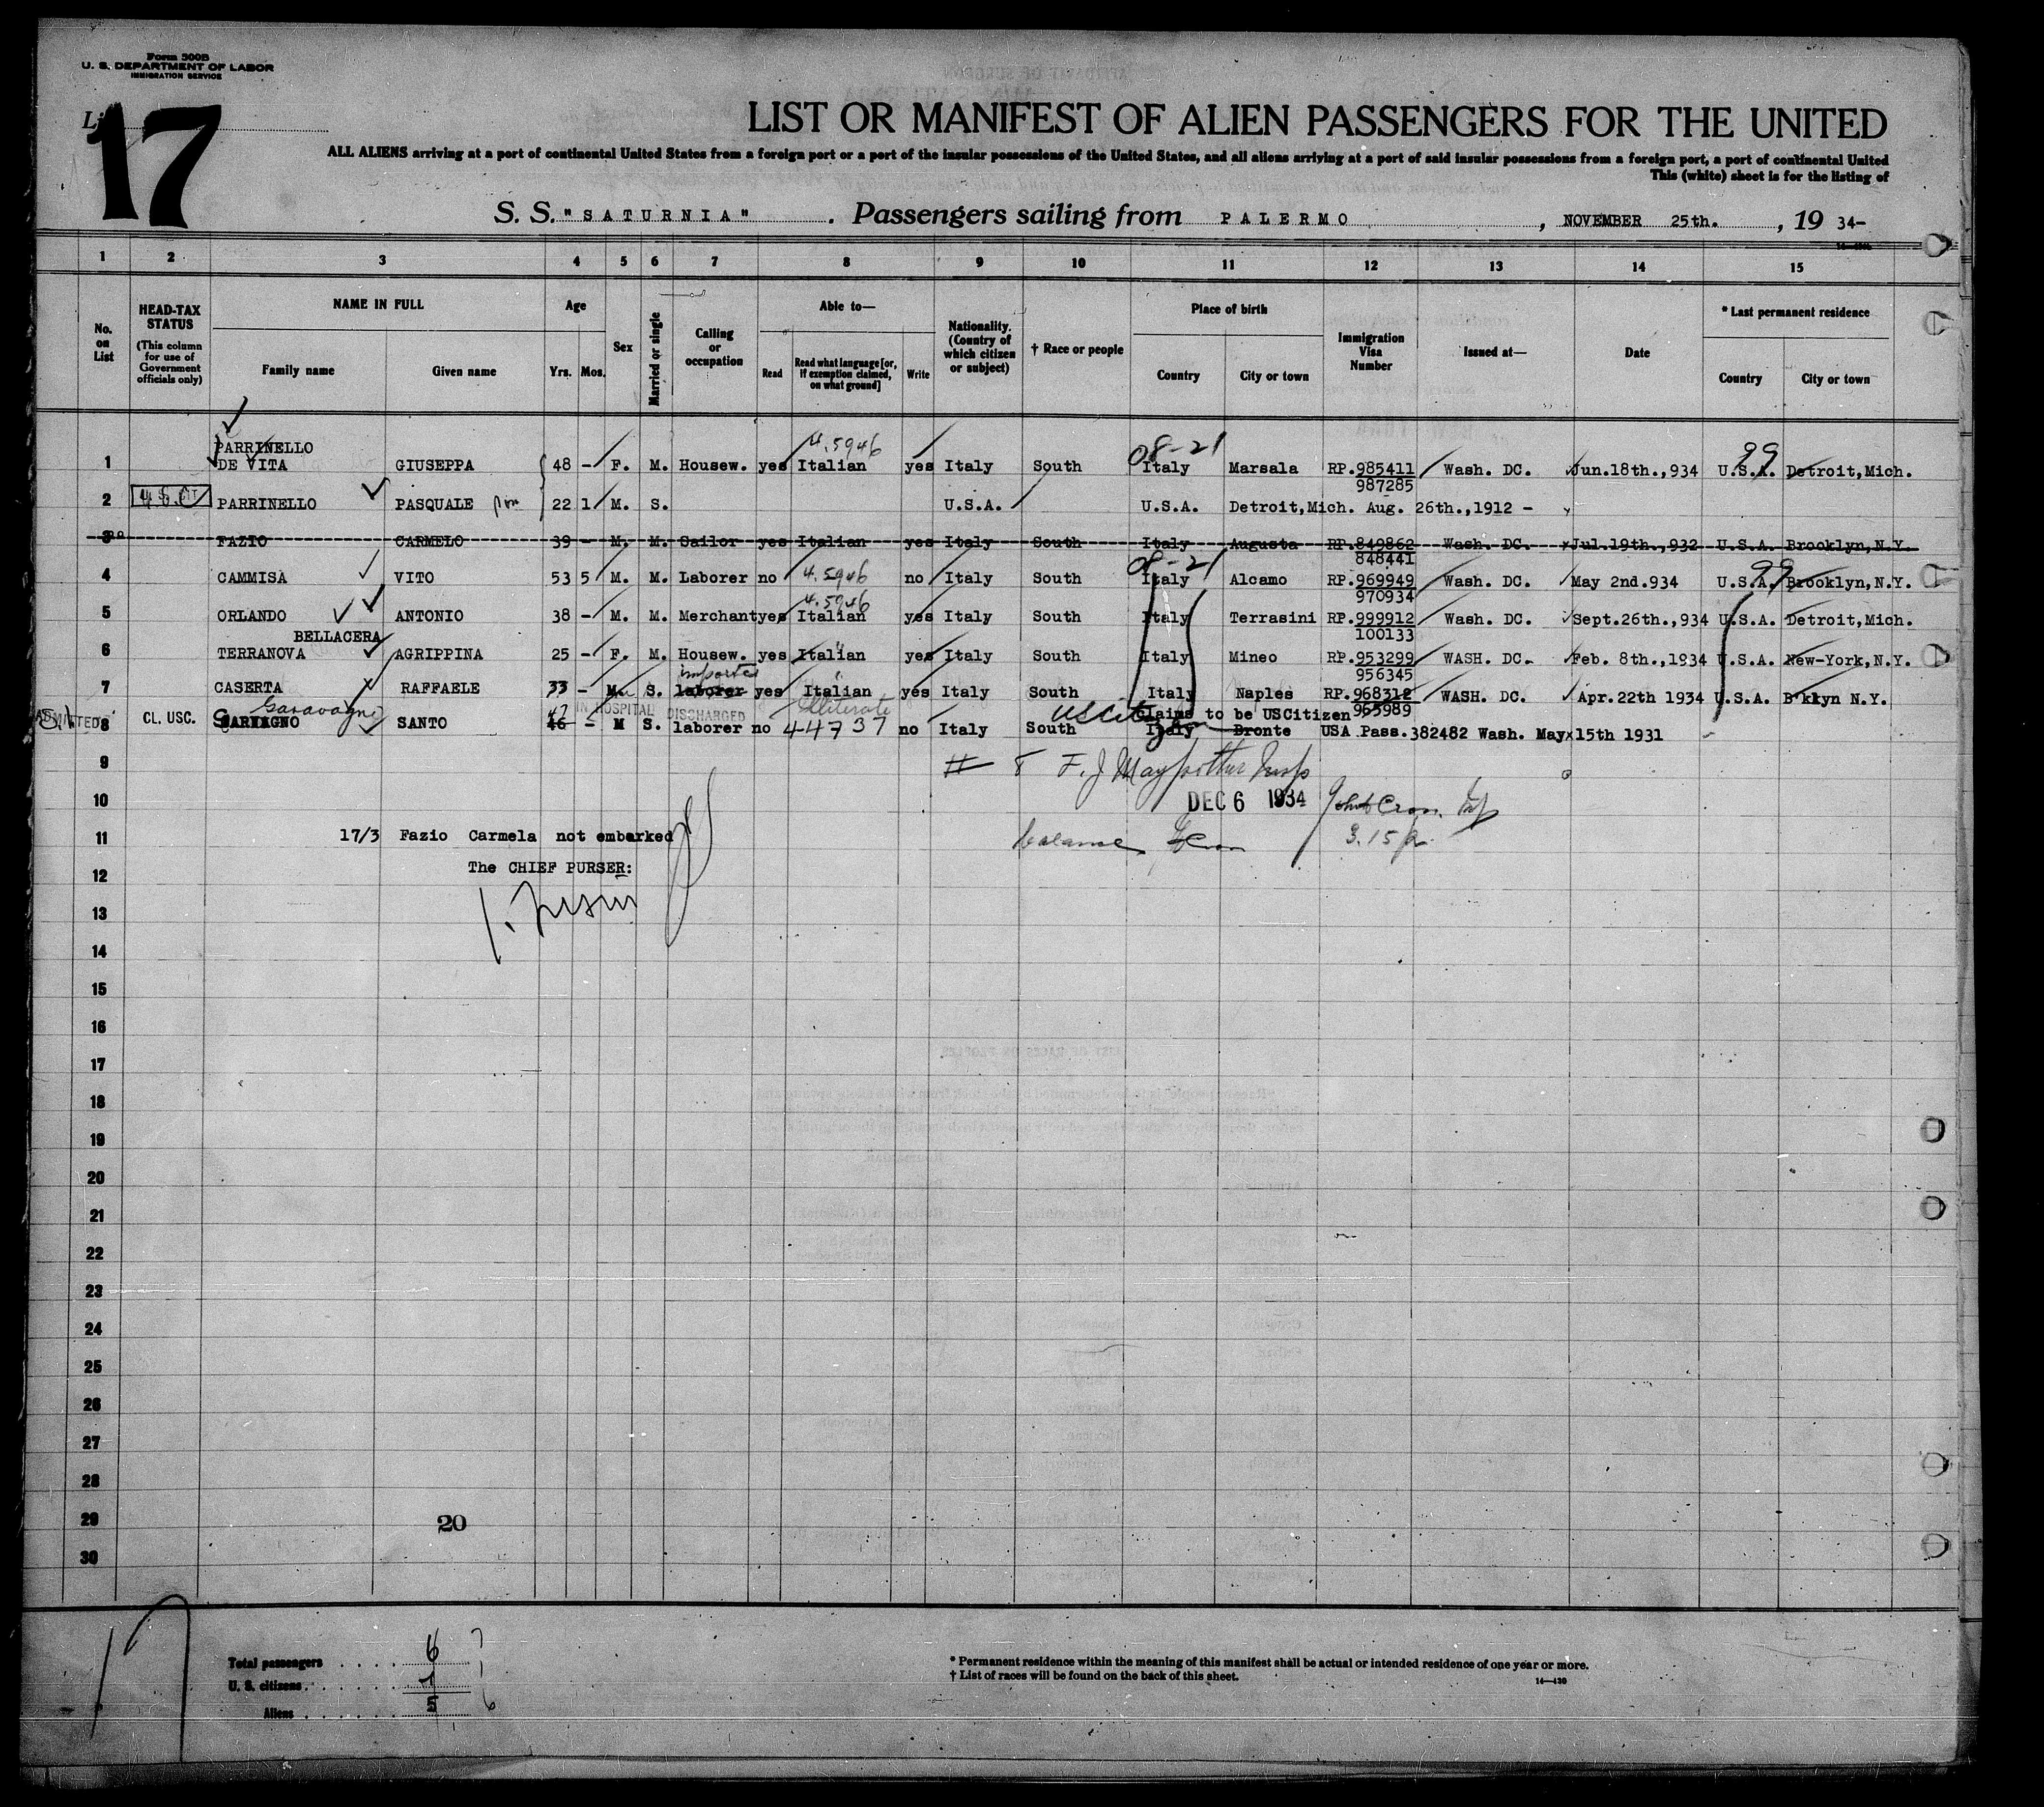 Form 500B
U. S. DEPARTMENT OF LABOR
IMMIGRATION SERVICE
17
LIST OR MANIFEST OF ALIEN PASSENGERS FOR THE UNITED
ALL ALIENS arriving at a port of continental United States from a foreign port or a port of the insular possessions of the United States, and all aliens arriving at a port of said insular possessions from a foreign port, a port of continental United
This (white) sheet is for the listing of
S. S. "SATURNIA" . Passengers sailing from PALERMO , NOVEMBER 25th. , 19 34-
1 2 3 4 5 6 7 8 9 10 11 12 13 14 15
No. on List
HEAD-TAX STATUS
(This column for use of Government officials only)
NAME IN FULL
Family name Given name
Age
Yrs. Mos.
Sex
Married or single
Calling or occupation
Able to—
Read Read what language [or, if exemption claimed, on what ground] Write
Nationality. (Country of which citizen or subject)
† Race or people
Place of birth
Country City or town
Immigration Visa Number
Issued at—
Date
* Last permanent residence
Country City or town
PARRINELLO 4.5946 08-21 99
1 DE VITA GIUSEPPA 48 - F. M. Housew. yes Italian yes Italy South Italy Marsala RP.985411 Wash. DC. Jun.18th.,934 U.S.A. Detroit,Mich.
987285
2 PARRINELLO PASQUALE 22 1 M. S. U.S.A. U.S.A. Detroit,Mich. Aug. 26th.,1912 -
3 FAZIO CARMELO 39 - M. M. Sailor yes Italian yes Italy South Italy Augusta RP.849862 Wash. DC. Jul.19th.,932 U.S.A. Brooklyn,N.Y.
848441
08-21 99
4 CAMMISA VITO 53 5 M. M. Laborer no 4.5946 no Italy South Italy Alcamo RP.969949 Wash. DC. May 2nd.934 U.S.A. Brooklyn,N.Y.
970934
4.5946
5 ORLANDO ANTONIO 38 - M. M. Merchant yes Italian yes Italy South Italy Terrasini RP.999912 Wash. DC. Sept.26th.,934 U.S.A. Detroit,Mich.
BELLACERA 100133
6 TERRANOVA AGRIPPINA 25 - F. M. Housew. yes Italian yes Italy South Italy Mineo RP.953299 WASH. DC. Feb. 8th.,1934 U.S.A. New-York,N.Y.
importer 956345
7 CASERTA RAFFAELE 33 - M. S. laborer yes Italian yes Italy South Italy Naples RP.968312 WASH. DC. Apr.22th 1934 U.S.A. B'klyn N.Y.
965989
Saravagno 47 IN HOSPITAL DISCHARGED Illiterate US Citizen Claims to be USCitizen
ADMITTED 8 CL. USC. SARVAGNO SANTO 46 - M S. laborer no 44737 no Italy South Italy Bronte USA Pass.382482 Wash. May 15th 1931
9
10 DEC 6 1934
11 17/3 Fazio Carmela not embarked 3.15 p
The CHIEF PURSER:
12
13
14
15
16
17
18
19
20
21
22
23
24
25
26
27
28
29 20
30
17
Total passengers . . . . 6 7
U. S. citizens . . . . . . 1 1
Aliens . . . . . 5 6
* Permanent residence within the meaning of this manifest shall be actual or intended residence of one year or more.
† List of races will be found on the back of this sheet.
14—430